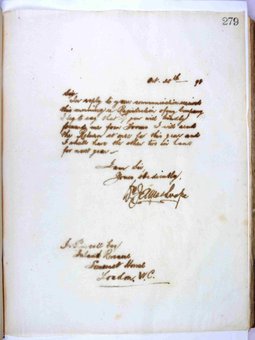 279
Oct. 28th 90
Sir,
In reply to your communication received
this morning re Registration of my Company
I beg to say that if you will kindly
forward me four Forms I will send
the Return at once for this year and
I shall have the other two in hand
for next year.
I am Sir
Yours obediently
J. P. Esq
Inland Revenue
Somerset House
London, W.C.